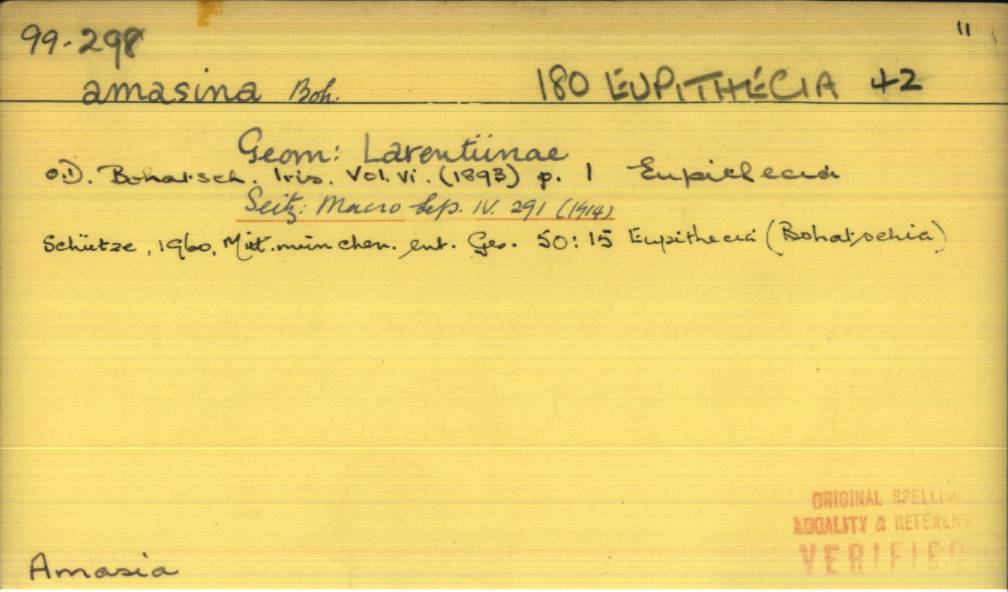 99-298 "
amasina Boh. 180 EUPITHECIA 42
Geom: Larentiinae
OD. Bohatsch. Iris. Vol. Vi. (1893) p. 1 Eupithecia
Seitz: Macro Lep. IV. 291 (1914)
Schütze, 1960, Mitt. münchen. ent. Ges. 50: 15 Eupithecia (Bohatschia)
ORIGINAL SPELLIN
LOCALITY & REFEREN
VERIFIED
Amasia